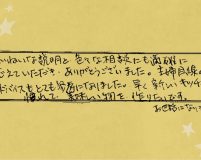 ていねいな説明と色々な相談にも高確に
答えていただき、ありがとうございました。主婦目線の
アドバイスもとても参考になりました。早く新しいキッチン
慣れて、美味しい物を作りたいです。
お世話になり